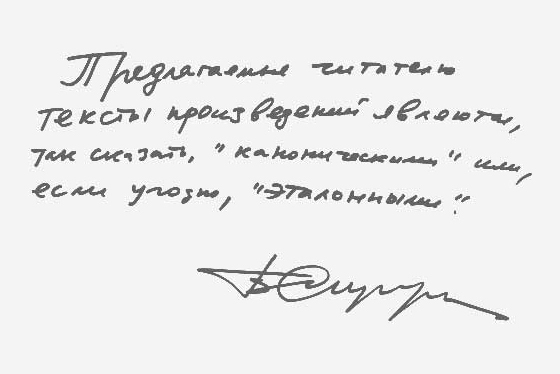 Предлагаемые читателю
тексты произведений являются,
так сказать, "каноническими" или,
если угодно, "эталонными".